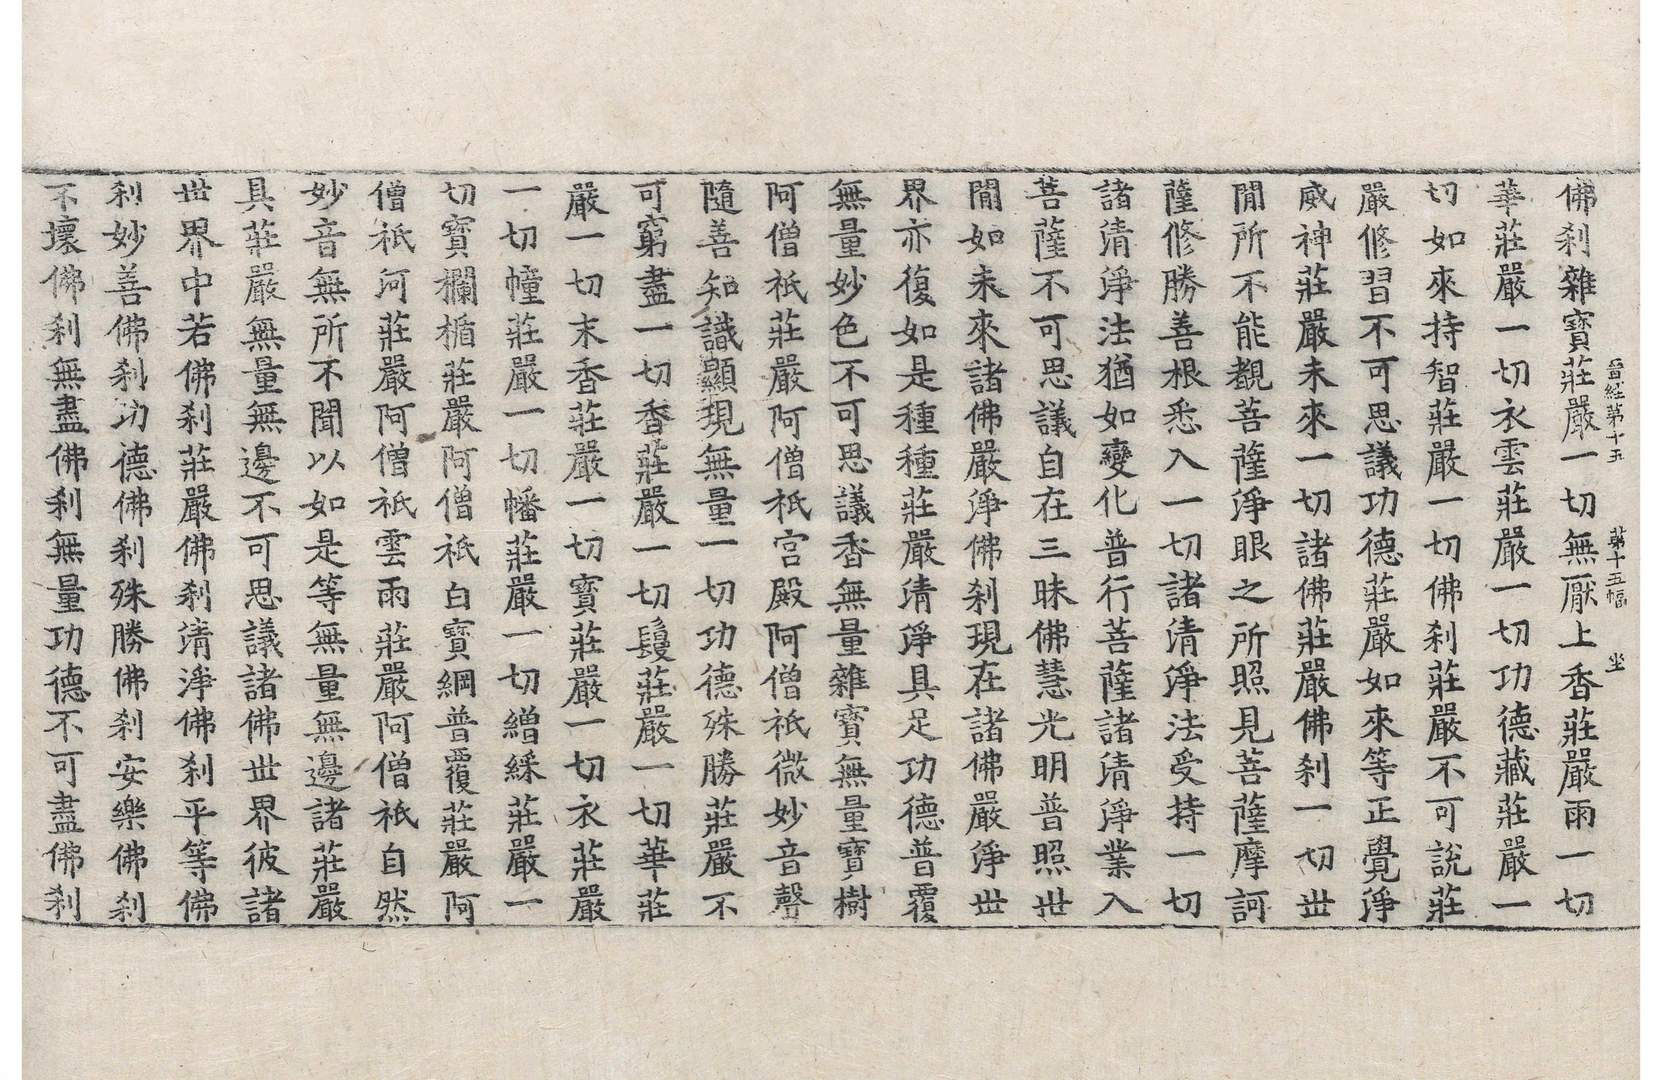 晉經第十五　第十五幅　坐
佛刹雜寶莊嚴一切無厭上香莊嚴雨一切
華莊嚴一切衣雲莊嚴一切功德藏莊嚴一
切如來持智莊嚴一切佛刹莊嚴不可說莊
嚴修習不可思議功德莊嚴如來等正覺淨
威神莊嚴未來一切諸佛莊嚴佛刹一切世
閒所不能覩菩薩淨眼之所照見菩薩摩訶
薩修勝善根悉入一切諸清淨法受持一切
諸清淨法猶如變化普行菩薩諸清淨業入
菩薩不可思議自在三昧佛慧光明普照世
閒如未來諸佛嚴淨佛刹現在諸佛嚴淨世
界亦復如是種種莊嚴清淨具足功德普覆
無量妙色不可思議香無量雜寶無量寶樹
阿僧祇莊嚴阿僧祇宮殿阿僧祇微妙音聲
隨善知識顯現無量一切功德殊勝莊嚴不
可窮盡一切香莊嚴一切鬘莊嚴一切華莊
嚴一切末香莊嚴一切寶莊嚴一切衣莊嚴
一切幢莊嚴一切幡莊嚴一切繒綵莊嚴一
切寶欄楯莊嚴阿僧祇白寶網普覆莊嚴阿
僧祇河莊嚴阿僧祇雲雨莊嚴阿僧祇自然
妙音無所不聞以如是等無量無邊諸莊嚴
具莊嚴無量無邊不可思議諸佛世界彼諸
世界中若佛刹莊嚴佛刹清淨佛刹平等佛
刹妙善佛刹功德佛刹殊勝佛刹安樂佛刹
不壞佛刹無盡佛刹無量功德不可盡佛刹